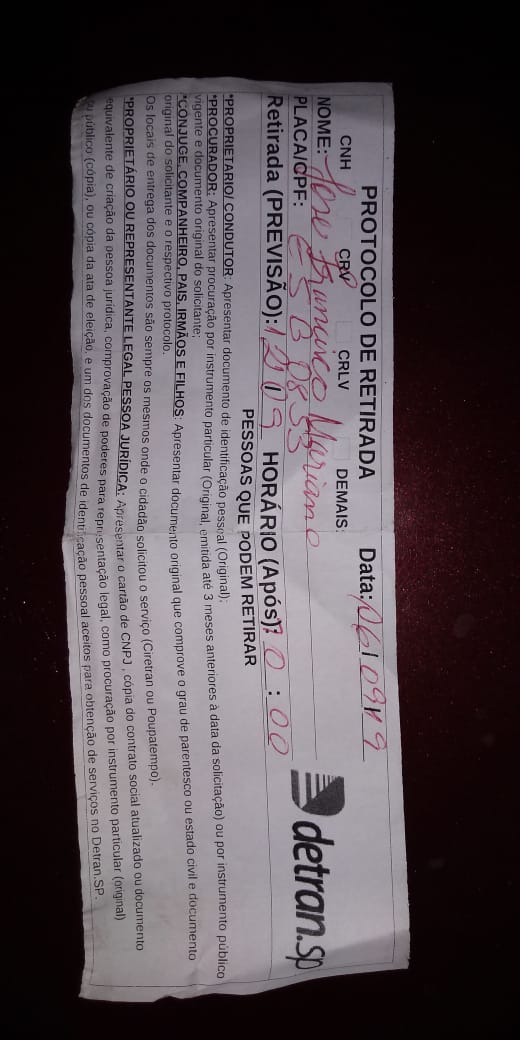 PROTOCOLO DE RETIRADA Data: 06/09/19
detran.sp
CNH CRV CRLV DEMAIS:
NOME: Jose Francisco Mariano
PLACA/CPF: ESB 0853
Retirada (PREVISÃO): 12/09 HORÁRIO (Após): 10:00
PESSOAS QUE PODEM RETIRAR
*PROPRIETÁRIO/ CONDUTOR: Apresentar documento de identificação pessoal (Original);
*PROCURADOR: Apresentar procuração por instrumento particular (Original, emitida até 3 meses anteriores à data da solicitação) ou por instrumento público
vigente e documento original do solicitante;
*CÔNJUGE, COMPANHEIRO, PAIS, IRMÃOS E FILHOS: Apresentar documento original que comprove o grau de parentesco ou estado civil e documento
original do solicitante e o respectivo protocolo.
Os locais de entrega dos documentos são sempre os mesmos onde o cidadão solicitou o serviço (Ciretran ou Poupatempo).
*PROPRIETÁRIO OU REPRESENTANTE LEGAL PESSOA JURÍDICA: Apresentar o cartão de CNPJ , cópia do contrato social atualizado ou documento
equivalente de criação da pessoa jurídica, comprovação de poderes para representação legal, como procuração por instrumento particular (original)
ou público (cópia), ou cópia da ata de eleição, e um dos documentos de identificação pessoal aceitos para obtenção de serviços no Detran.SP.